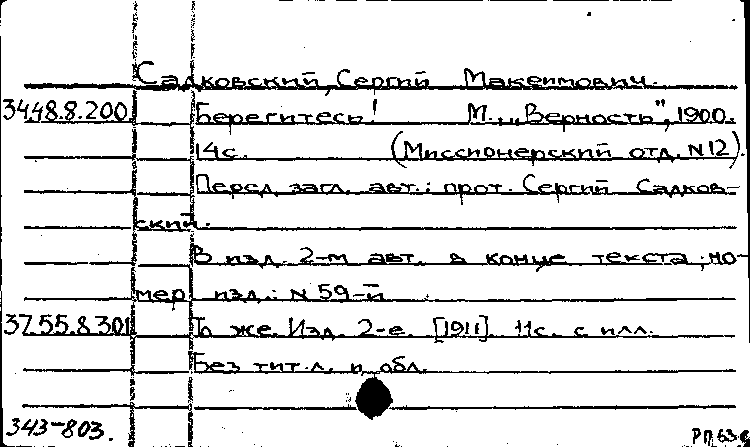 Садковский, Сергий Максимович.
34.48.8.200. Берегитесь! М., „Верность", 1900.
14с. (Миссионерский отд. N12).
Перед загл. авт.: прот. Сергий Садков-
ский.
В изд. 2-м авт. в конце текста; но-
мер изд.: N 59-й
37.55.8.301 То же. Изд. 2-е. [1911]. 11с. с илл.
Без тит. л. и обл.
343-803.
РП 63-